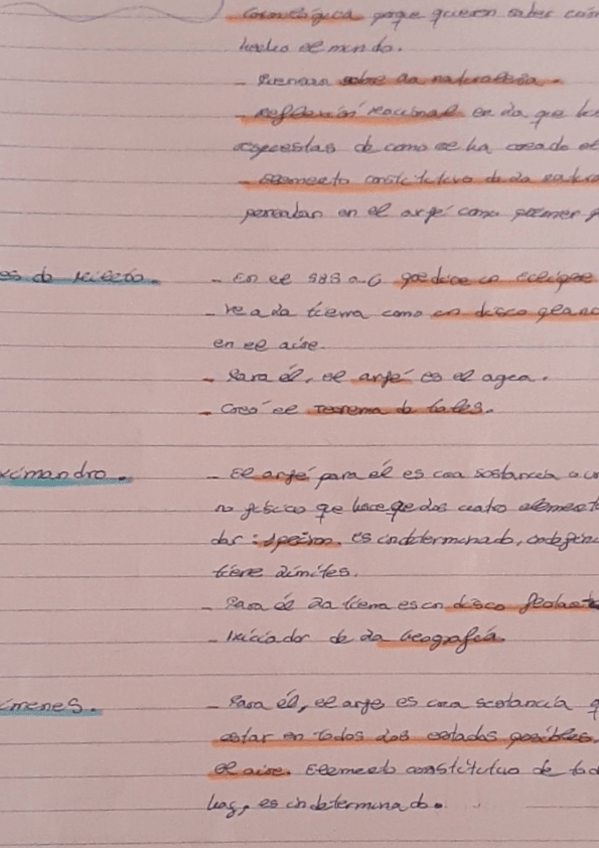 Cosmológica porqe quieren saber cóm
hecho el mundo.
- Piensan sobre la naturaleza.
- Reflexión racional en la que bu
respuestas de como se ha creado el
- Elemento constitutivo de la natura
pensaban en el arjé como primer p
es de Mileto. - En el 585 a.C predice un eclipse
- Ve a la tierra como un disco plano
en el aire.
- Para él, el arjé es el agua.
- Creó el Teorema de Tales.
ximandro. - El arjé para él es una sostancia
no físico qe hace qe los cuatro element
dar: ápeiron. Es indeterminado,
tiene límites.
- Para él la tierra es un disco flotant
- Iniciador de la Geografía.
ímenes. - Para él, el arjé es una sostancia q
estar en todos los estados posibles.
el aire. Elemento constitutivo de tod
hay, es indeterminado.